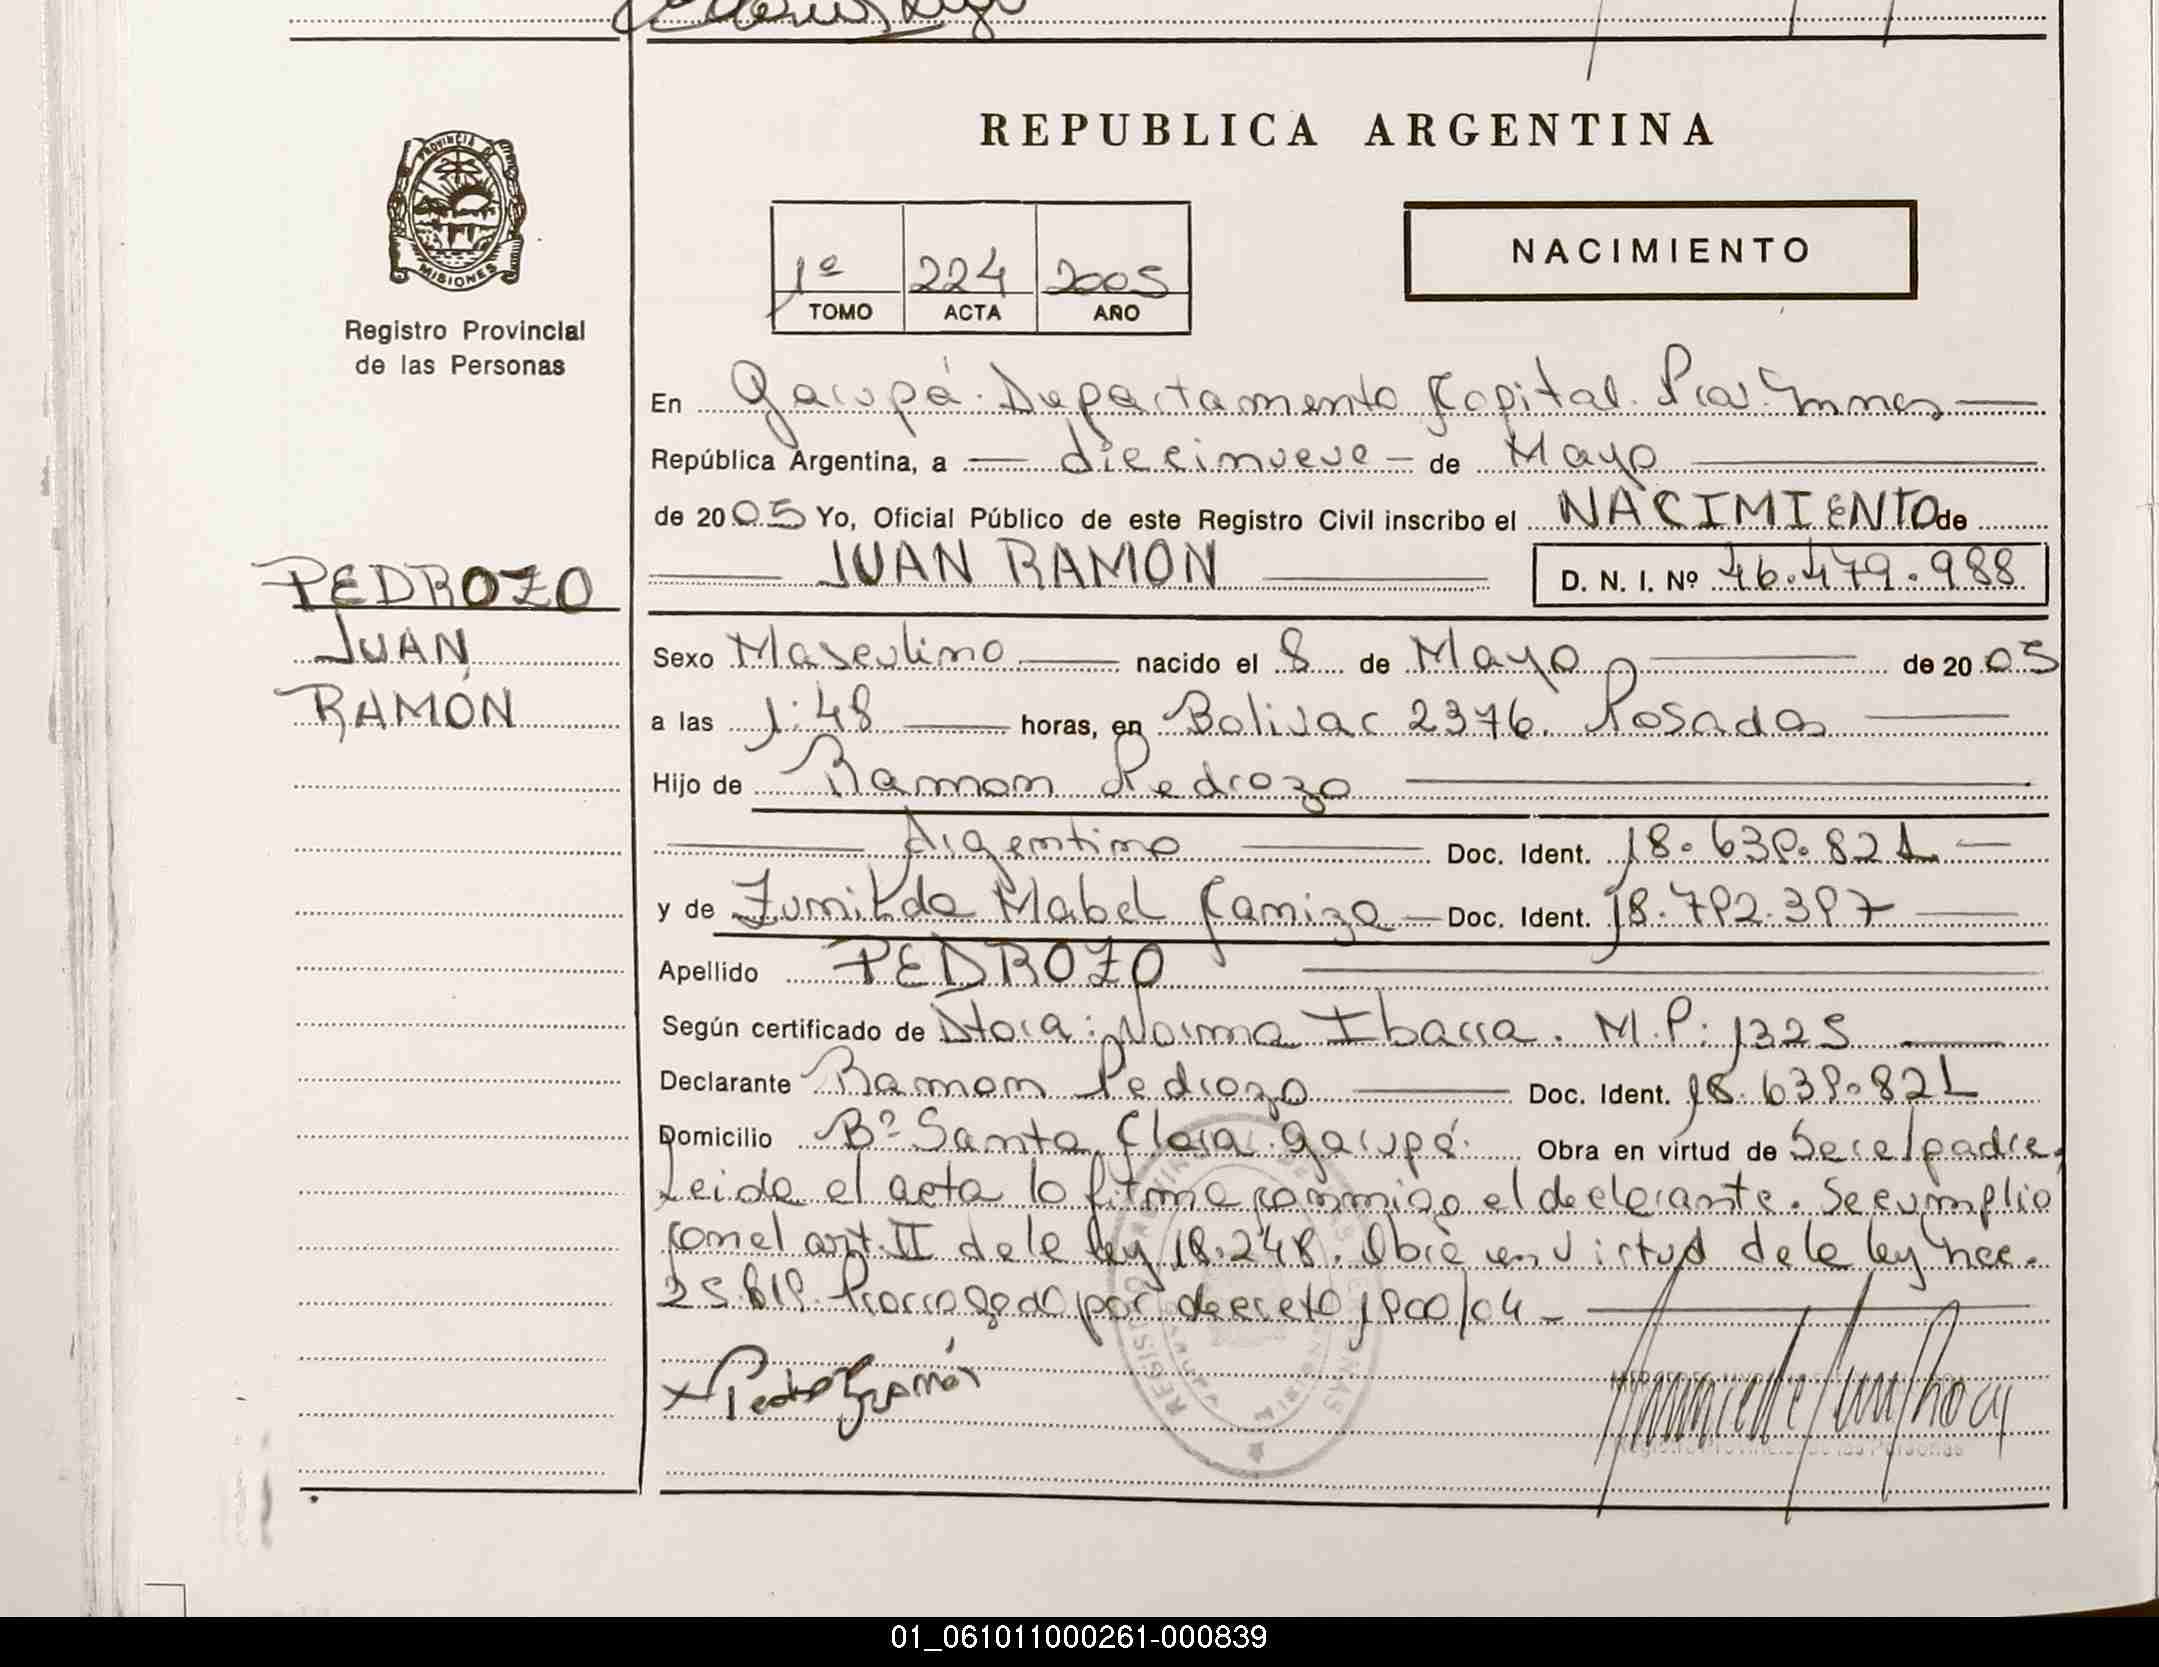 REPUBLICA ARGENTINA
PROVINCIA DE
MISIONES
Registro Provincial
de las Personas
1º 224 2005
TOMO ACTA AÑO
NACIMIENTO
En Garupá. Departamento Capital. Prov. Mnes
República Argentina, a diecinueve de Mayo
de 2005 Yo, Oficial Público de este Registro Civil inscribo el NACIMIENTO de
JUAN RAMON D. N. I. Nº 46.479.988
PEDROZO
JUAN
RAMÓN
Sexo Masculino nacido el 8 de Mayo de 2005
a las 1:48 horas, en Bolivar 2376. Posadas
Hijo de Ramon Pedrozo
Argentino Doc. Ident. 18.639.821
y de Zunilda Mabel Caniza Doc. Ident. 18.792.397
Apellido PEDROZO
Según certificado de Dtora: Norma Ibarra. M.P: 1325
Declarante Ramon Pedrozo Doc. Ident. 18.639.821
Domicilio Bº Santa Clara. Garupá. Obra en virtud de Ser el padre.
Leida el acta la firma conmigo el declarante. Se cumplio
con el art. II de la ley 18.248. Obré en virtud de la ley nac.
25.819. Prorrogado por decreto 1900/04 -
x Pedrozo Ramón
Registro Provincial de las Personas
01_061011000261-000839